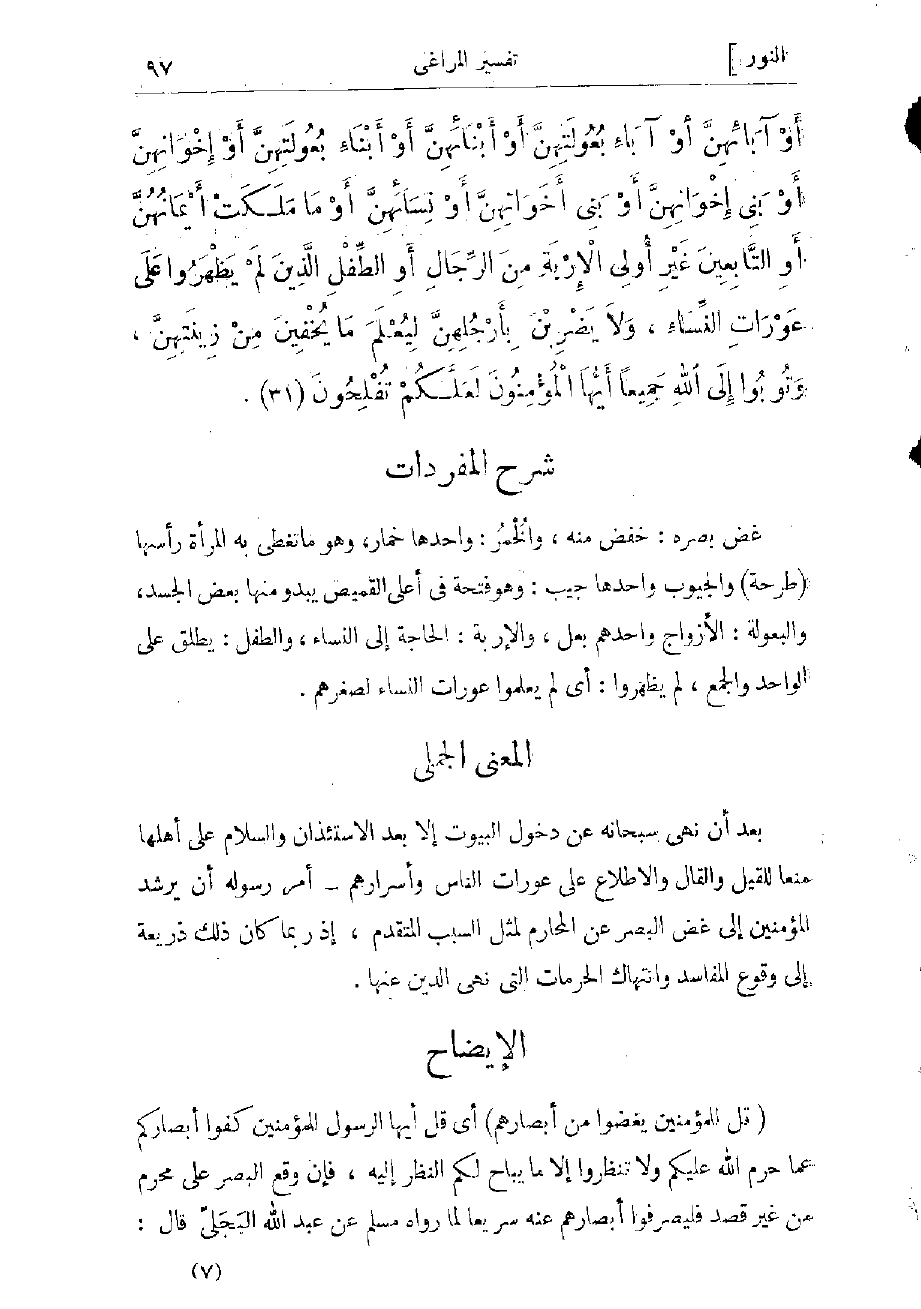 النور] تفسير المراغى ٩٧
أَوْ آبَائِهِنَّ أَوْ آبَاءِ بُعُولَتِهِنَّ أَوْ أَبْنَائِهِنَّ أَوْ أَبْنَاءِ بُعُولَتِهِنَّ أَوْ إِخْوَانِهِنَّ
أَوْ بَنِي إِخْوَانِهِنَّ أَوْ بَنِي أَخَوَاتِهِنَّ أَوْ نِسَائِهِنَّ أَوْ مَا مَلَكَتْ أَيْمَانُهُنَّ
أَوِ التَّابِعِينَ غَيْرِ أُولِي الْإِرْبَةِ مِنَ الرِّجَالِ أَوِ الطِّفْلِ الَّذِينَ لَمْ يَظْهَرُوا عَلَى
عَوْرَاتِ النِّسَاءِ ، وَلاَ يَضْرِبْنَ بِأَرْجُلِهِنَّ لِيُعْلَمَ مَا يُخْفِينَ مِنْ زِينَتِهِنَّ ،
وَتُوبُوا إِلَى اللهِ جَمِيعاً أَيُّهَا الْمُؤْمِنُونَ لَعَلَّكُمْ تُفْلِحُونَ (٣١) .
شرح المفردات
غض بصره : خفض منه ، والْخُمُرُ : واحدها خمار، وهو ما تغطى به المرأة رأسها
(طرحة) والجيوب واحدها جيب : وهو فتحة فى أعلى القميص يبدو منها بعض الجسد،
والبعولة : الأزواج واحدهم بعل ، والإربة : الحاجة إلى النساء ، والطفل : يطلق على
الواحد والجمع ، لم يظهروا : أى لم يعلموا عورات النساء لصغرهم .
المعنى الجملى
بعد أن نهى سبحانه عن دخول البيوت إلا بعد الاستئذان والسلام على أهلها
منعا للقيل والقال والاطلاع على عورات الناس وأسرارهم – أمر رسوله أن يرشد
المؤمنين إلى غض البصر عن المحارم لمثل السبب المتقدم ، إذ ربما كان ذلك ذريعة
إلى وقوع المفاسد وانتهاك الحرمات التى نهى الدين عنها .
الإيضاح
( قل للمؤمنين يغضوا من أبصارهم) أى قل أيها الرسول للمؤمنين كفوا أبصاركم
عما حرم الله عليكم ولا تنظروا إلا ما يباح لكم النظر إليه ، فإن وقع البصر على محرم
من غير قصد فليصرفوا أبصارهم عنه سريعا لما رواه مسلم عن عبد الله البَجَلِىّ قال :
(٧)